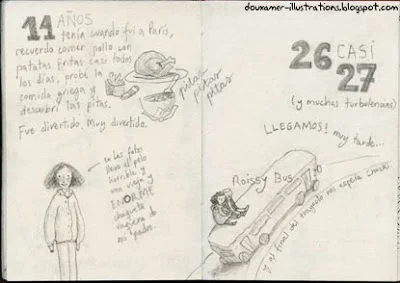 doumamer-illustrations.blogspot.com
11 AÑOS
tenía cuando fui a París,
recuerdo comer pollo con
patatas fritas casi todos
los días, probé la
comida griega y
descubrí las pitas.
Fue divertido. Muy divertido.
pita
pitas
pitas
en las fotos
llevo el pelo
horrible y
una vieja y
ENORME
chaqueta
vaquera de
mi padre.
26 CASI
27
(y muchas turbulencias)
LLEGAMOS! muy tarde...
Roissy Bus
y al final del trayecto nos espera